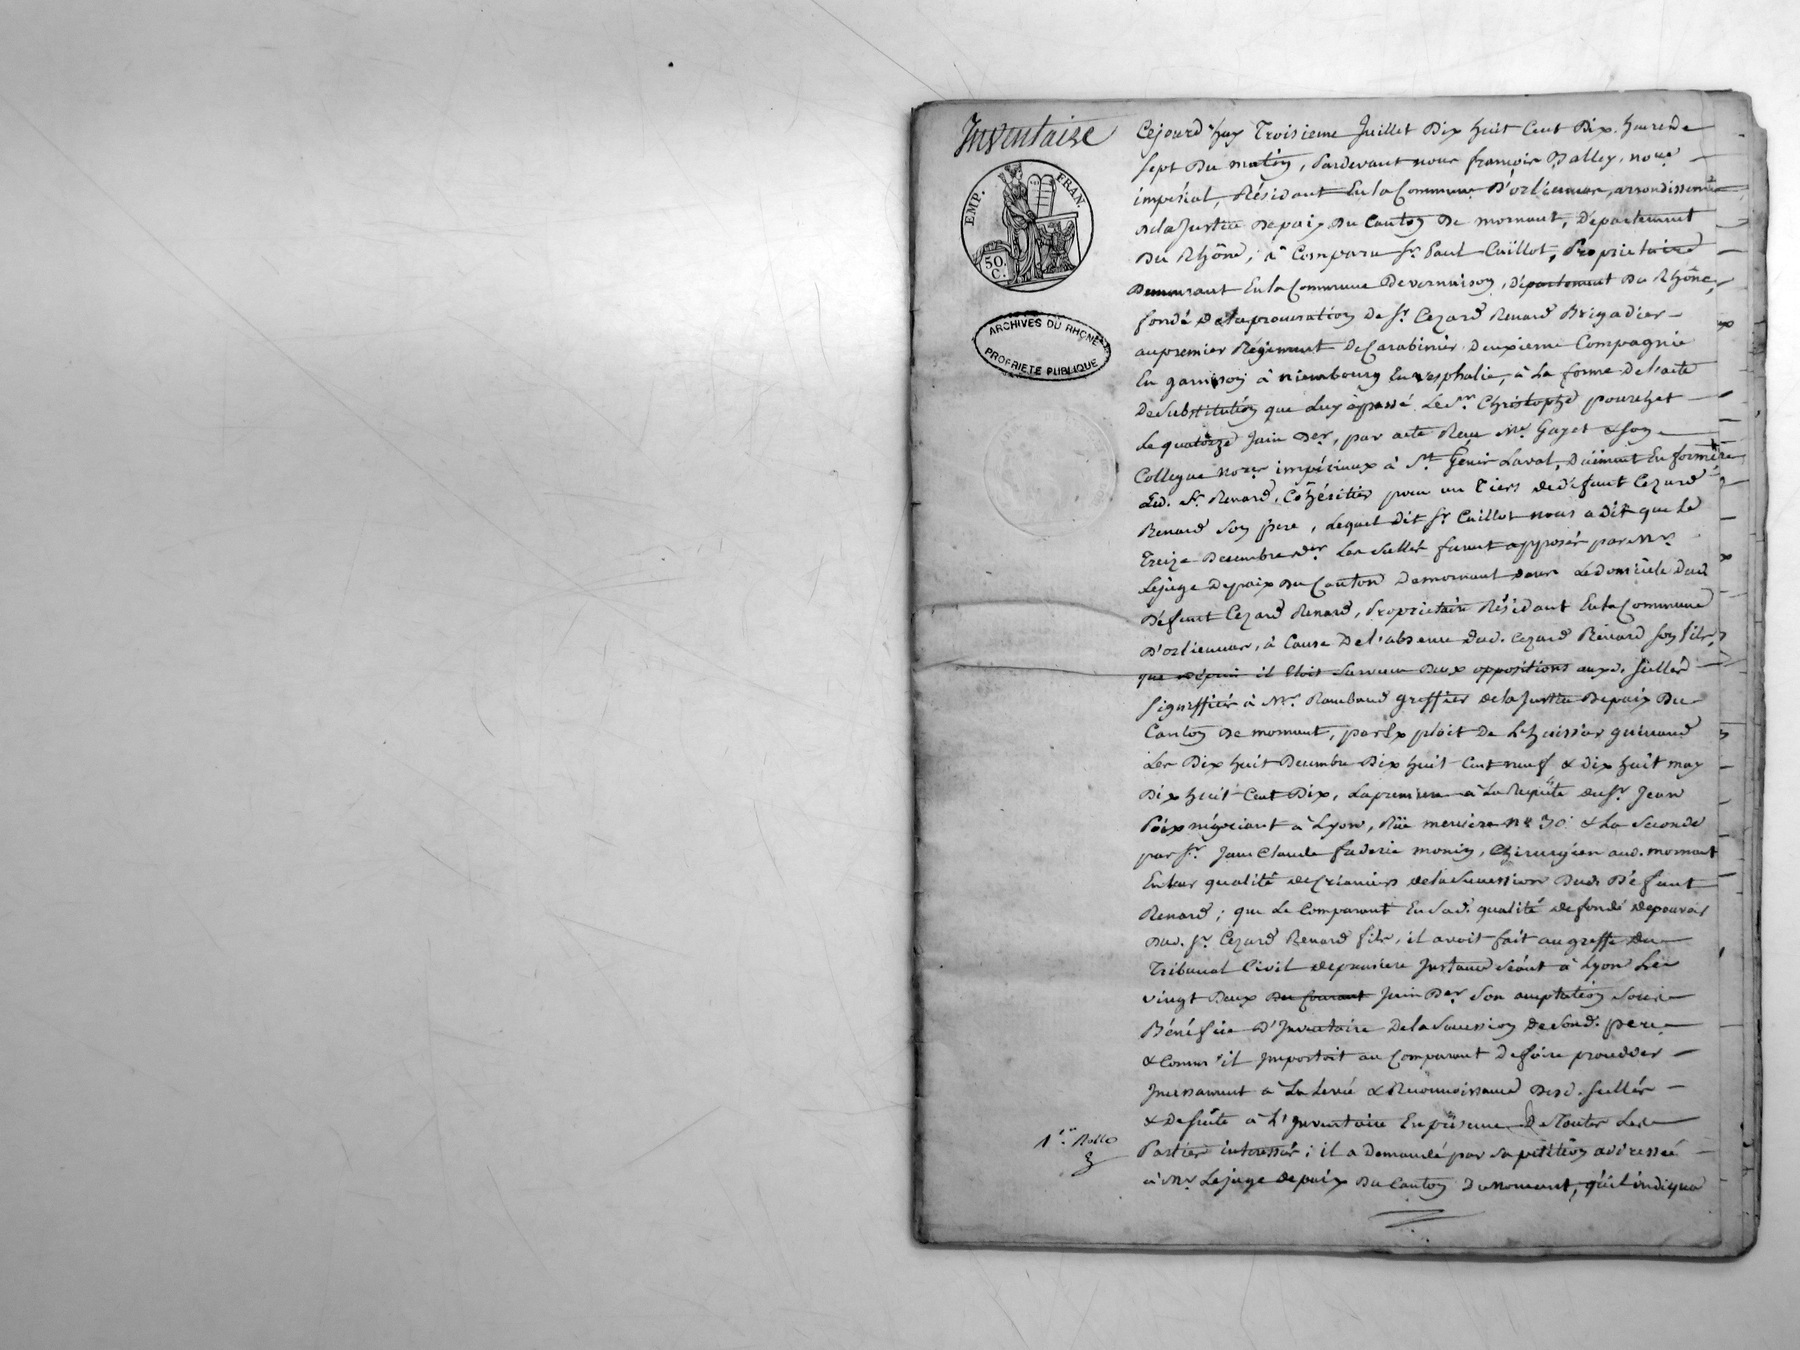 Inventaire
EMP. FRAN.
50. C.
ARCHIVES DU RHÔNE
PROPRIETE PUBLIQUE
Cejourd'huy Troisieme Juillet Dix huit Cent Dix. heure de
sept Du matin, Pardevant nous françois Dalley, nore
impérial, Résidant En la Commune D'orlienas, arrondissement
de la Justice De paix Du Canton De mornant, Département
Du Rhône, à Comparu Sr. Paul Cuillot, Proprietaire
Demeurant En la Commune De vernaison, département Du Rhône,
fondé De la procuration De Sr. Cezard Renard Brigadier
au premier Régiment De Carabinier Deuxieme Compagnie
En garnison à niembourg En vesphalie, à La forme De l'acte
De Substitution que Luy à passé Le Sr. Christophe pourchet
Le quatorze Juin Der, par acte Reçu Me. Gayet & son
Collegue nores impériaux à St. Genis Laval, Duëment En forme,
Led. Sr. Renard, Cohéritier pour un Tiers de défunt Cezard
Renard Son pere, Lequel dit Sr. Cuillot nous a dit que Le
Treize Decembre der. Les scellés furent apposés par Mr.
Le juge De paix Du Canton De mornant dans Le domicile Dud.
Défunt Cezard Renard, Proprietaire Résidant En la Commune
D'orlienas, à Cause De l'absence Dud. Cezard Renard Son fils,
que Depuis il Etoit Survenu Deux oppositions auxd. scellés
Signiffiés à Mr. Rambaud greffier de la Justice De paix Du
Canton De mornant, par Exploit De L'huissier guinand
Les Dix huit Decembre Dix huit Cent neuf & dix huit may
Dix huit Cent Dix, La premiere à La Requête du Sr. Jean
négociant à Lyon, Rüe merciere n° 30. & La Seconde
par Sr. Jean Claude monin, Chirurgien aud. mornant
En leur qualité de Créanciers de la Succession Dud. Défunt
Renard; que Le Comparant En Sad. qualité de fondé de pouvoir
Dud. Sr. Cezard Renard fils, il avoit fait au greffe Du
Tribunal Civil de premiere Instance séant à Lyon Le
vingt Deux Du Courant Juin Der. Son acceptation Sous
Bénéfice D'Inventaire De la Succession De Sond. pere
& Comme il Importoit au Comparant De faire procéder
Incessament à La Levée & Reconnoissance Desd. scellés
& De suite à L'Inventaire En présence De Toutes Les
Parties intéressés; il a Demandé par Sa pétition addressée
à Mr. Le juge De paix Du Canton De mornant, qu'il indiqua
1er. Rolle